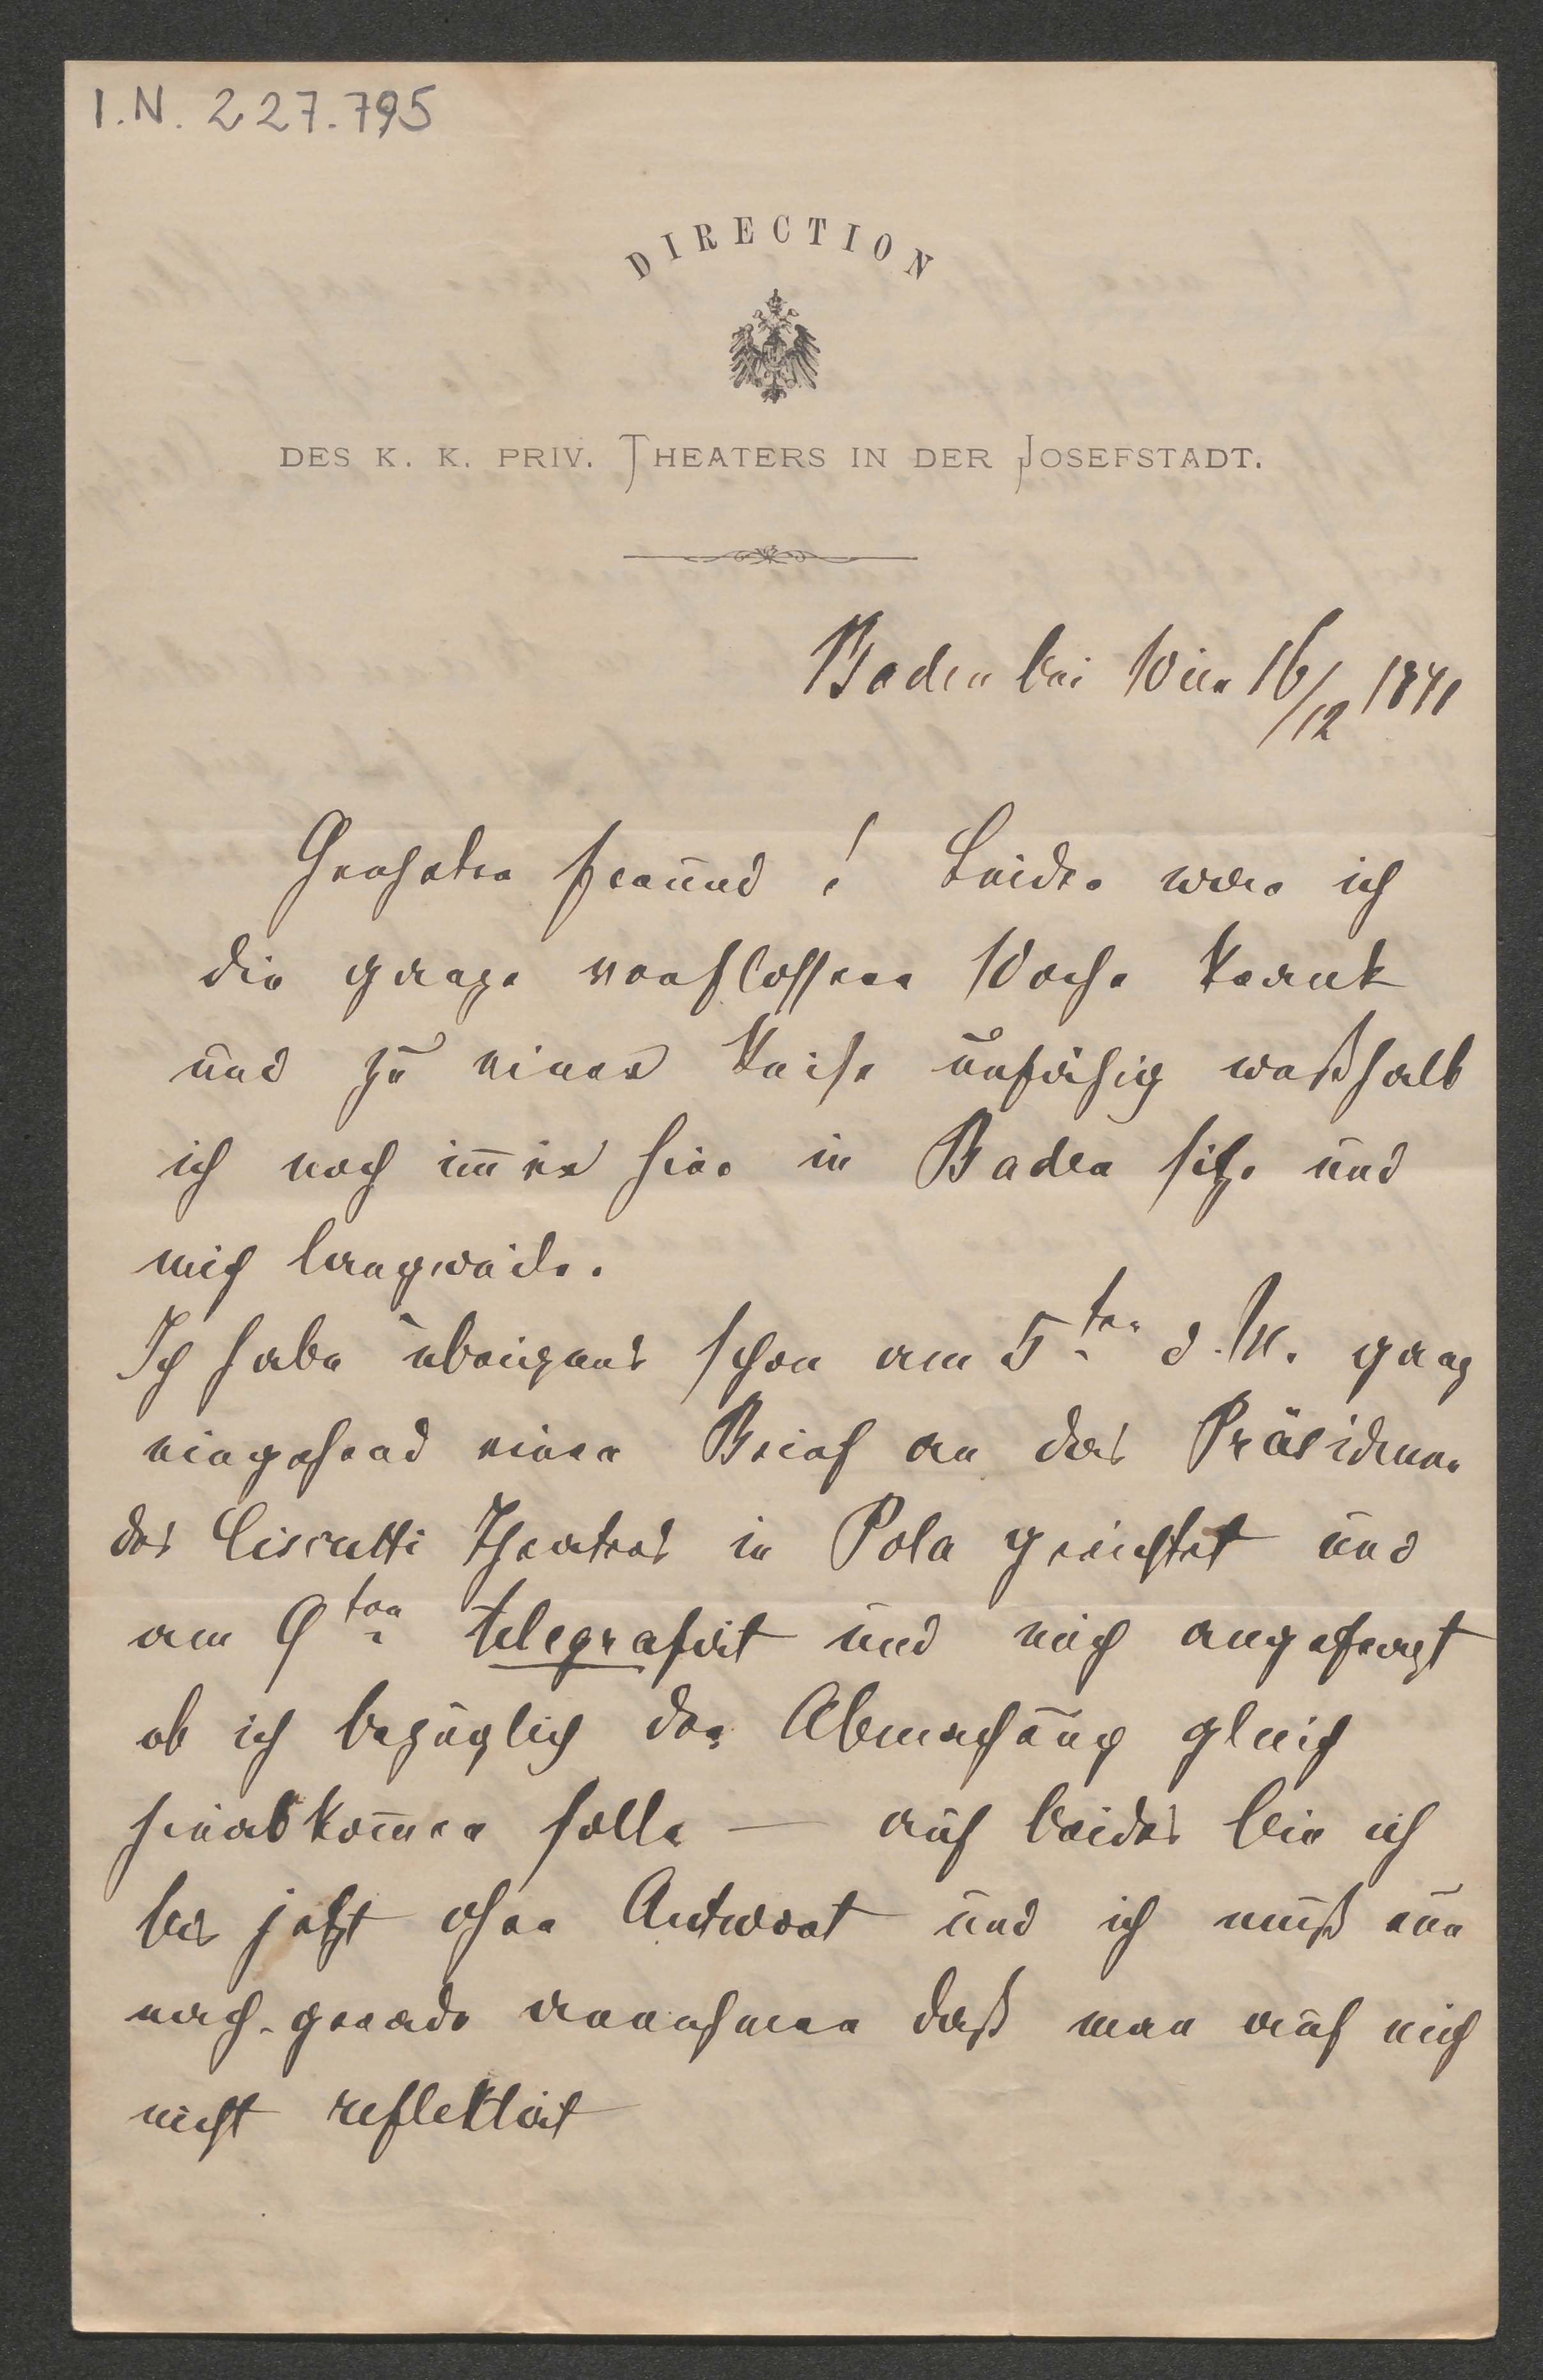 I.N. 227.795
DIRECTION
DES K. K. PRIV. THEATERS IN DER JOSEFSTADT.
Baden bei Wien 16/12 1891
Geehrter Freund! Leider war ich
die ganze verflossene Woche krank
und zu einer Reise unfähig weßhalb
ich noch im̄er hier in Baden sitze und
mich langweile.
Ich habe übrigens schon am 5ten d. M. ganz
eingehend einen Brief an das Präsidium
des Ciscutti Theaters in Pola gerichtet und
am 9ten telegrafirt und mich angefragt
ob ich bezüglich der Abmachung gleich
hinabkom̄en solle — auf beides bin ich
bis jetzt ohne Antwort und ich muß nun
nach-gerade annehmen daß man auf mich
nicht reflektirt